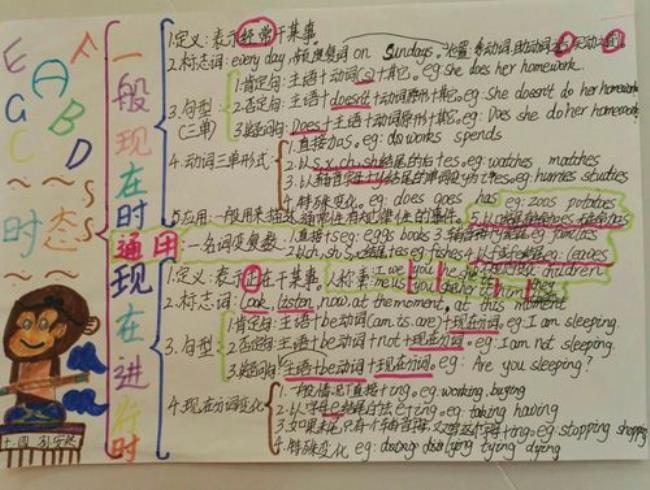 E A F
G B
C D
~ ~ s
时态 s
~ ~
一般现在时
1.定义:表示经常干某事。
2.标志词:every day,频度副词 on Sundays。
3.句型(三单)
1.肯定句:主语+动词(s)+其它。eg:she does her homework.
2.否定句:主语+doesn't+动词原形+其它。eg:She doesn't do her homework
3.疑问句:Does+主语+动词原形+其它。eg:Does she do her homework
4.动词三单形式:
1.直接加s. eg: works spends
2.以s,x,ch,sh结尾的后+es.eg:watches
3.以辅音字母+y结尾的单词变y为i+es.eg:hurries studies
4.特殊变化。eg: does goes has
5.应用:一般用来描述 有规律性的事件。
eg: zoos potatoes
通用:一名词变复数
1.直接+s eg:eggs books
2.以ch,sh,s,x结尾+es eg:fishes
eg:leaves
children
现在进行时
1.定义:表示正在干某事。
人称 I we you he she
me us you him
2.标志词:look,listen,now,at the moment,at this moment
3.句型
1.肯定句:主语+be动词(am.is.are)+现在分词。eg:I am sleeping.
2.否定句:主语+be动词+not+现在分词。eg:I am not sleeping.
3.疑问句:主语+be动词+现在分词。eg: Are you sleeping?
4.现在分词变化
1.一般情况下直接+ing.eg:working.buying
2.以字母e结尾的去e+ing.eg: taking having
3.如果末尾只有个辅音字母,又 ing.eg:stopping shopping
4.特殊变化 eg: lying tying dying